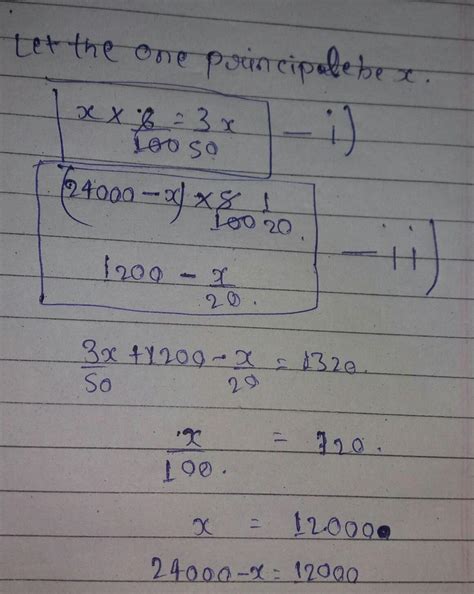 Let the one principale be x.
x × 6/100 = 3x/50 — i)
(24000 - x) × 5/100 1/20.
1200 - x/20. — ii)
3x/50 + 1200 - x/20 = 1320.
x/100. = 120.
x = 12000
24000 - x = 12000